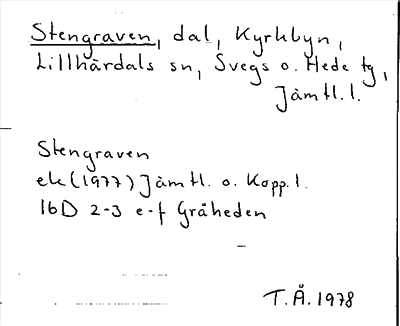 Stengraven, dal, Kyrkbyn,
Lillhärdals sn, Svegs o. Hede tg,
Jämtl. l.
Stengraven
ek (1977) Jämtl. o. Kopp. l.
16D 2-3 e-f Gråheden
T.Å. 1978